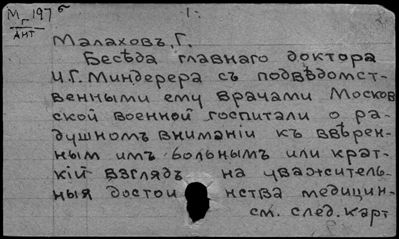 М 197 б
Г
Ант
·1·
Малаховъ, Г.
Бесѣда главнаго доктора
И.Г. Миндерера съ подвѣдомст-
венными ему врачами Москов
ской военной госпитали о ра-
душномъ вниманіи къ ввѣрен-
нымъ имъ больнымъ или крат-
кій взглядъ на уважитель-
ныя достои нства медицин-
см. след. карт